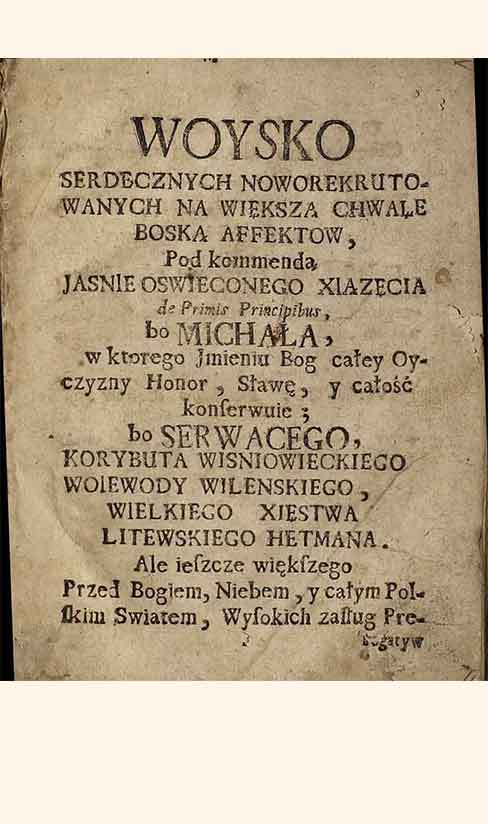 WOYSKO
SERDECZNYCH NOWOREKRUTO-
WANYCH NA WIĘKSZA CHWAŁE
BOSKA AFFEKTOW,
Pod kommendą
JASNIE OSWIECONEGO XIAZĘCIA
de Primis Principibus,
bo MICHAŁA,
w ktorego Jmieniu Bog całey Oy-
czyzny Honor, Sławę, y całość
konſerwuie;
bo SERWACEGO,
KORYBUTA WISNIOWIECKIEGO
WOIEWODY WILENSKIEGO,
WIELKIEGO XIĘSTWA
LITEWSKIEGO HETMANA.
Ale ieſzcze więkſzego
Przed Bogiem, Niebem, y całym Pol-
ſkim Swiatem, Wyſokich zaſług Pre-
rogatyw